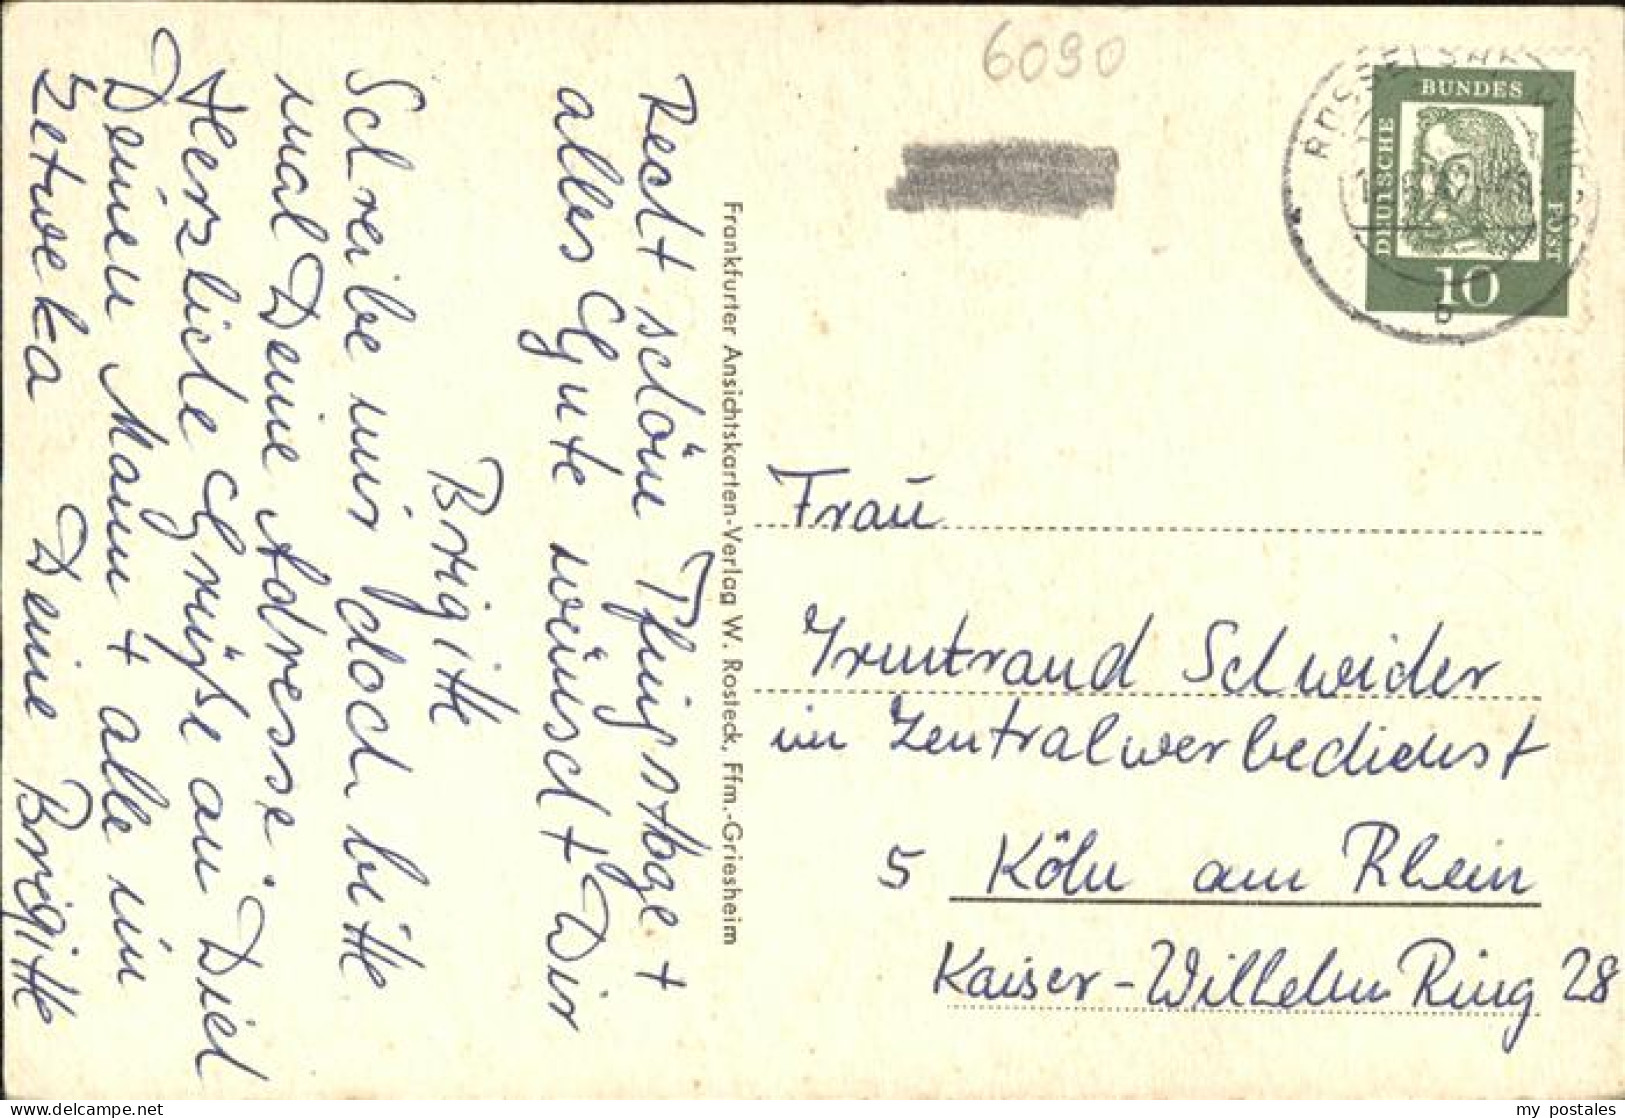 Recht schöne Pfingsttage +
alles Gute wünscht Dir
Brigitte
Schreibe mir doch bitte
mal Deine Adresse.
Herzliche Grüße an Dich
Deinen Mann + alle im
Zetweka Deine Brigitte
Frankfurter Ansichtskarten-Verlag W. Rosteck, Ffm.-Griesheim
6090
RÜSSELSHEIM
b
DEUTSCHE
BUNDES
POST
10
Frau
Irmtraud Schneider
im Zentralwerbedienst
5 Köln am Rhein
Kaiser-Wilhelm Ring 28
my postales